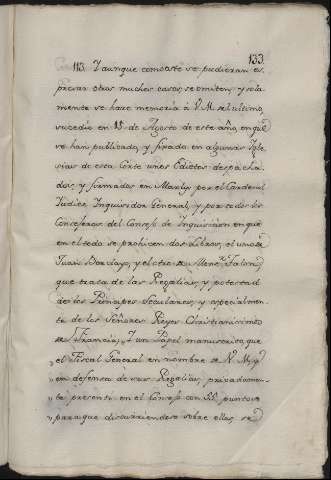 133.
113. Y aunque como este se pudieran es
presar otros muchos casos, se omiten, y sola
mente se hace memoria à V.M. del ultimo
sucedio en 15 de Agosto de este año, en que
se han publicado, y fixado en algunas Igle
sias de esta Corte unos Edictos despacha
dos, y firmados en Marly por el Cardenal
Judice Inquisidor General, y por todos los
Consejeros del Consejo de Inquisicion en que
en el todo se prohiven dos Libros, el uno de
Juan Barclayo, y el otro de Mons.r Talon,
que trata de las Regalias, y potestad
de los Principes Seculares, y especialmen
te de los Señores Reyes Christianisimos
de Francia, Y un Papel manuscrito que
„ el Fiscal General en nombre de V.M. y
„ en defensa de sus Regalias, privadamen
„ te presentò en el Consejo con 55. puntos
„ para que discurriendose sobre ellos, se